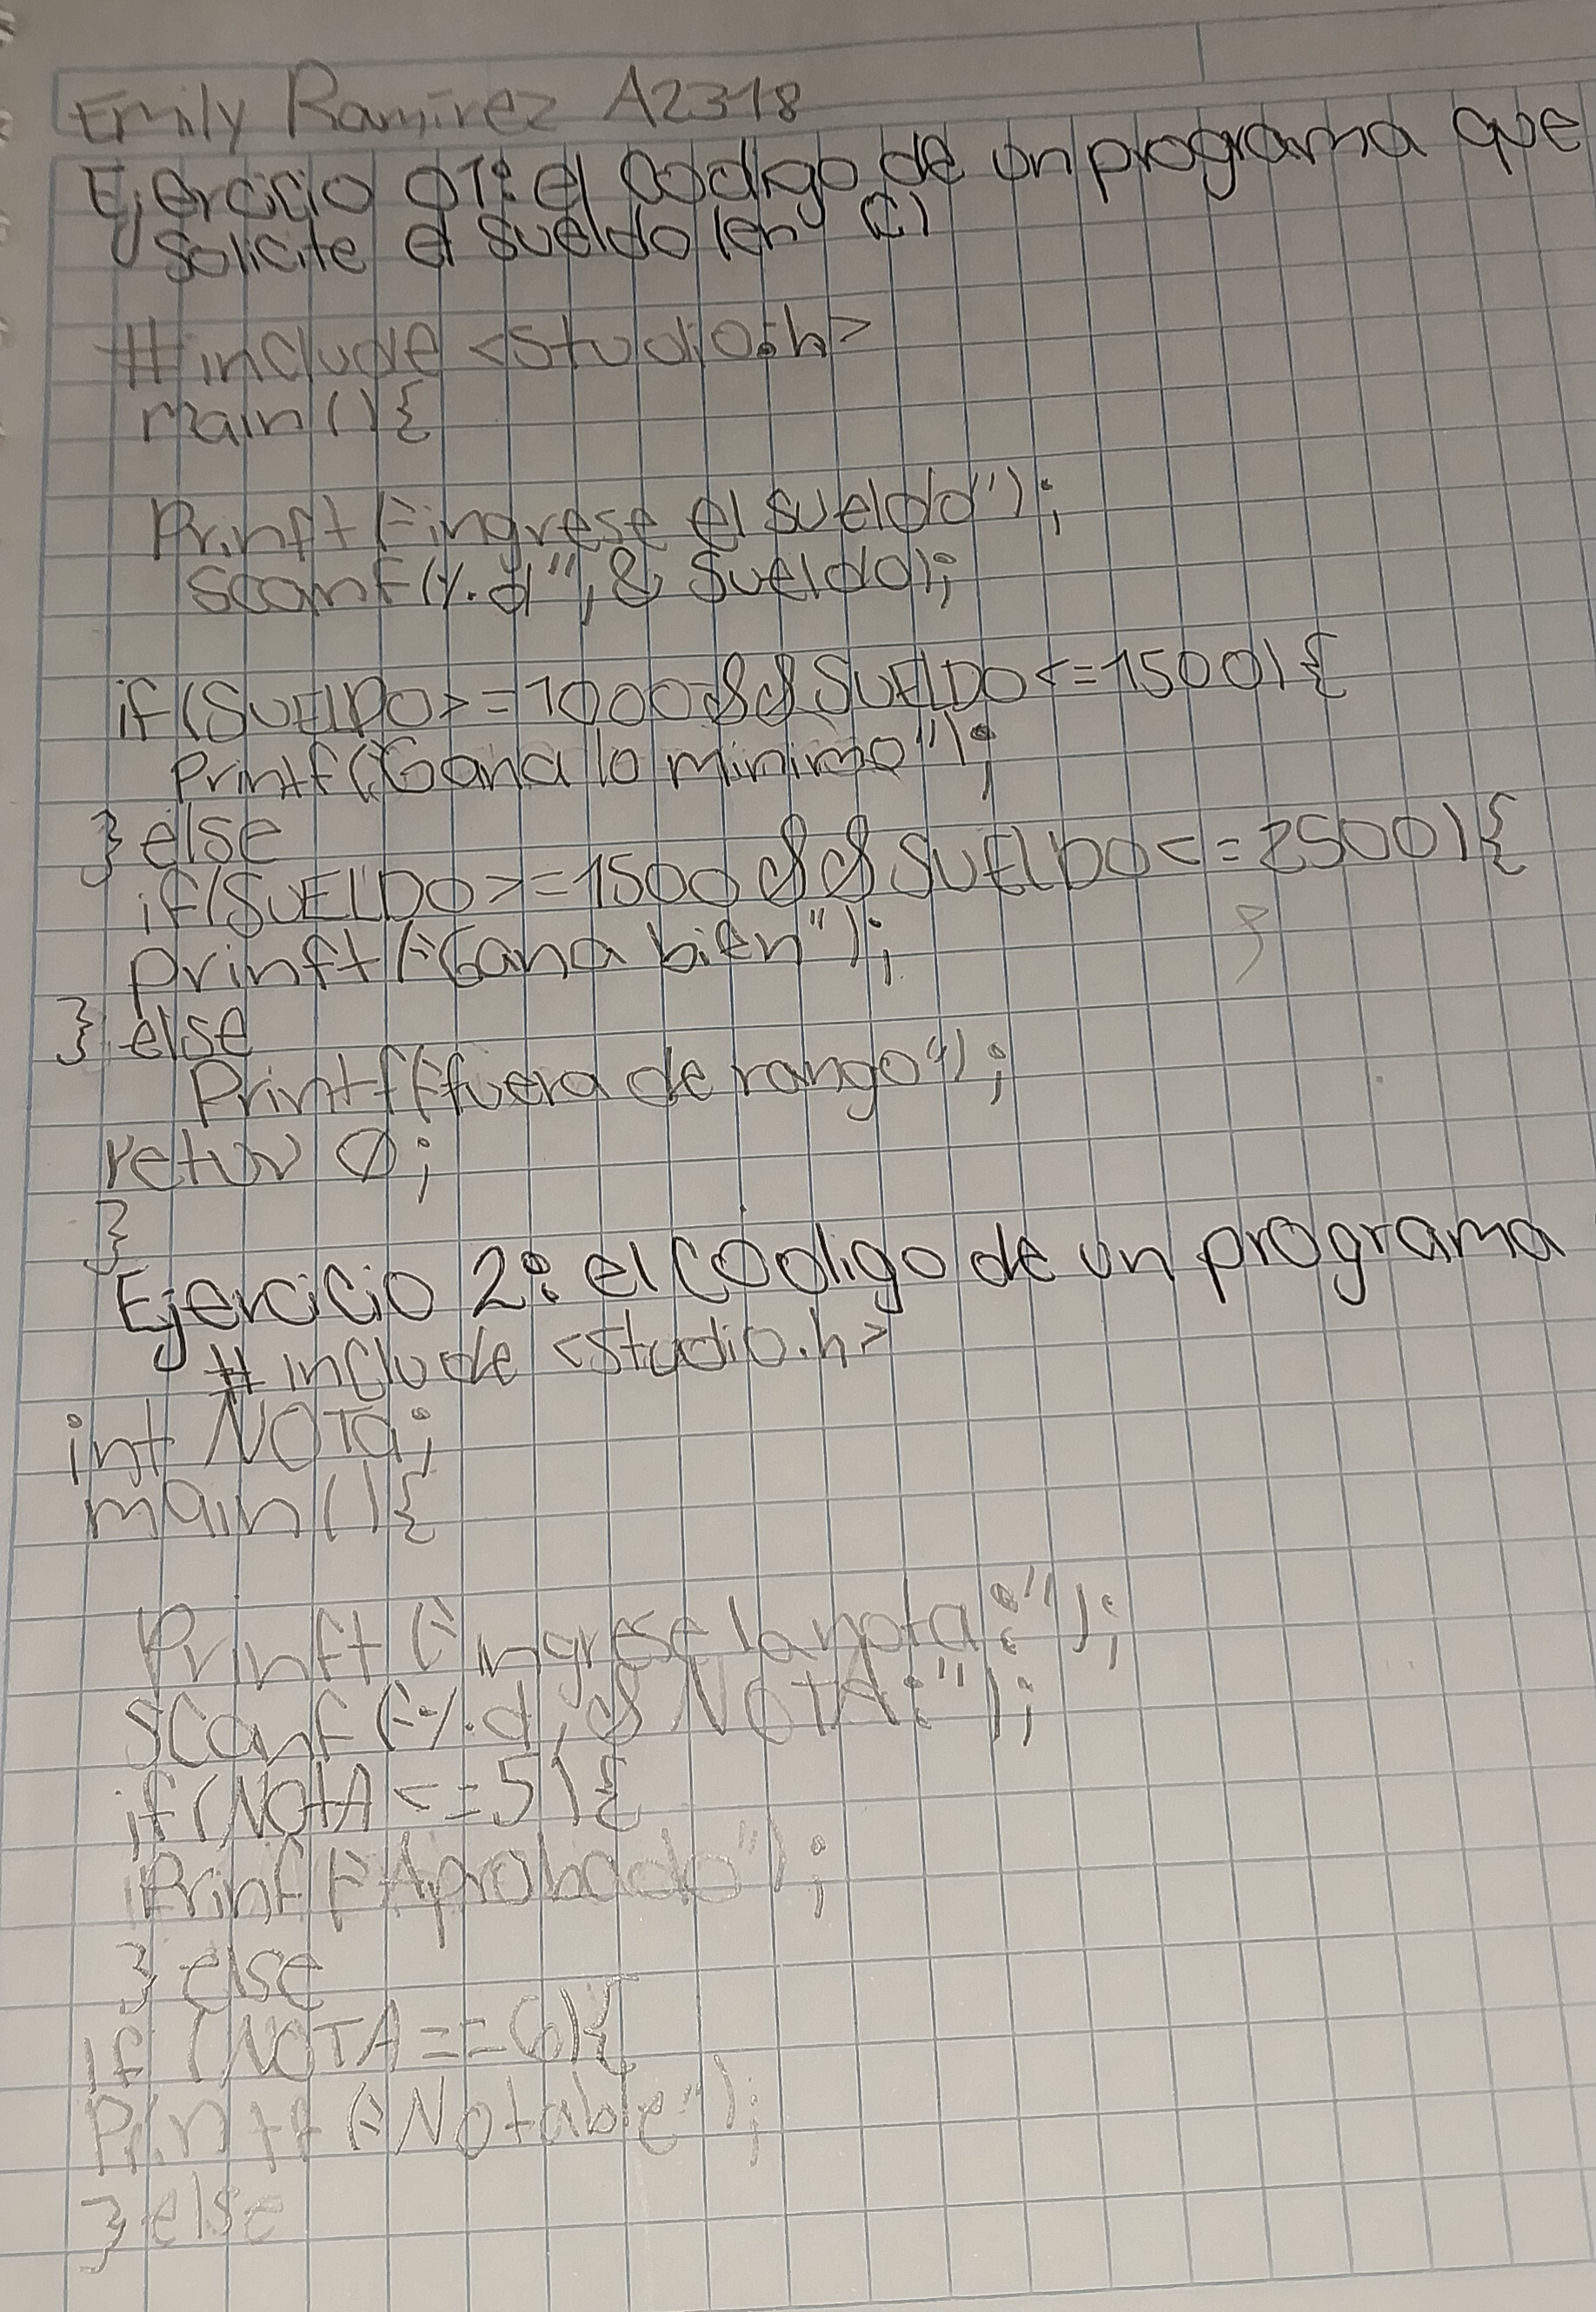 Emily Ramírez A2318
Ejercicio 01: el codigo de un programa que
solicite el sueldo (en C)
#include <studio.h>
main(){
Prinft("ingrese el sueldo");
scanf(%d", & Sueldo);
if(SUElDO>=1000&&SUElDO<=1500){
Printf("Gana lo minimo");
} else
if(SUElDO>=1500 && SUElDO<=2500){
prinft("Gana bien");
} else
Printf("fuera de rango");
retur 0;
}
Ejercicio 2: el código de un programa
#include <studio.h>
int NOTa;
main(){
Prinft ("ingrese la nota:");
scanf ("%d, & NOTA:");
if (NOtA <=5){
Prinf("Aprobado");
} else
If (NOTA==6){
Printf ("Notable");
} else